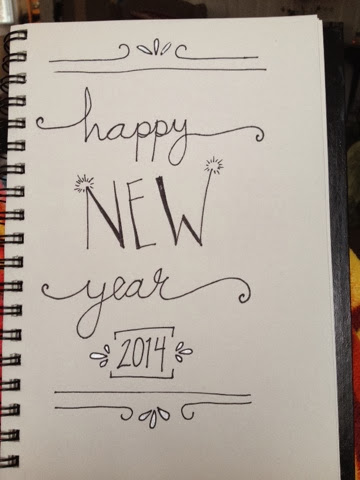 happy
NEW
year
2014